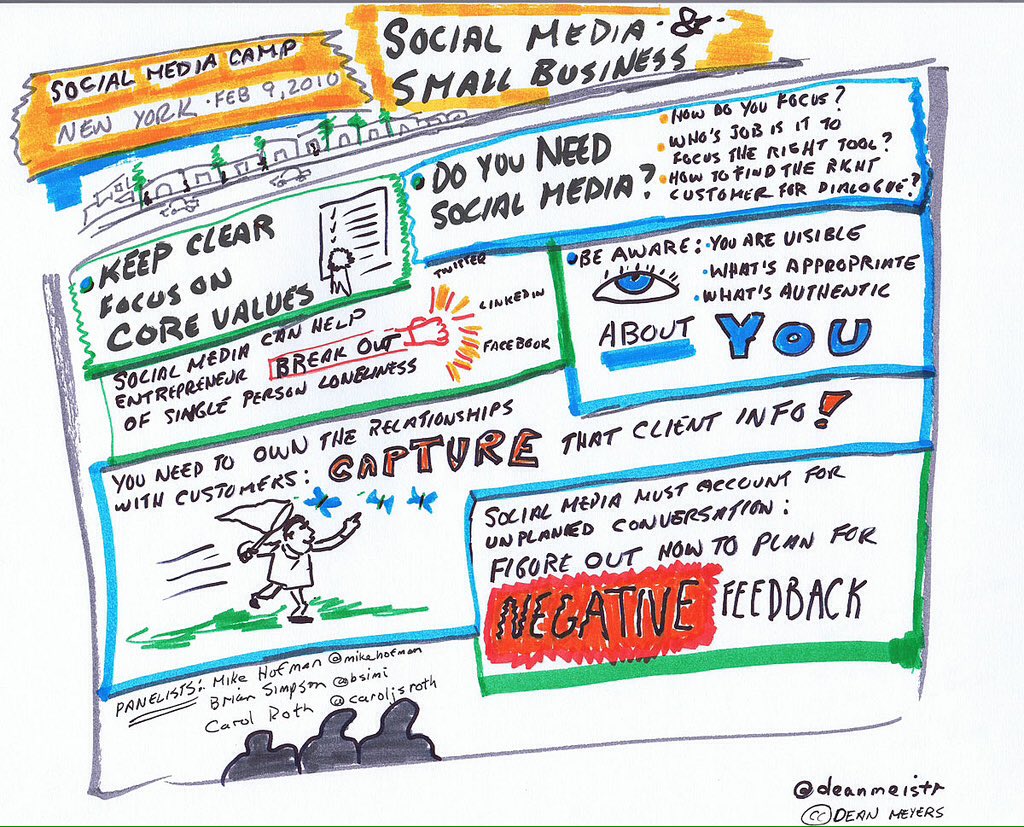 SOCIAL MEDIA CAMP
NEW YORK · FEB 9, 2010
SOCIAL MEDIA &
SMALL BUSINESS
• DO YOU NEED
SOCIAL MEDIA?
• HOW DO YOU FOCUS?
• WHO'S JOB IS IT TO
FOCUS THE RIGHT TOOL?
• HOW TO FIND THE RIGHT
CUSTOMER FOR DIALOGUE?
• KEEP CLEAR
FOCUS ON
CORE VALUES
• BE AWARE: • YOU ARE VISIBLE
• WHAT'S APPROPRIATE
• WHAT'S AUTHENTIC
ABOUT YOU
SOCIAL MEDIA CAN HELP
ENTREPRENEUR BREAK OUT
OF SINGLE PERSON LONELINESS
TWITTER
LINKEDIN
FACEBOOK
YOU NEED TO OWN THE RELATIONSHIPS
WITH CUSTOMERS: CAPTURE THAT CLIENT INFO!
SOCIAL MEDIA MUST ACCOUNT FOR
UNPLANNED CONVERSATION:
FIGURE OUT HOW TO PLAN FOR
NEGATIVE FEEDBACK
PANELISTS: Mike Hofman @mikehofman
Brian Simpson @bsimi
Carol Roth @caroljsroth
@deanmeistr
(cc) DEAN MEYERS